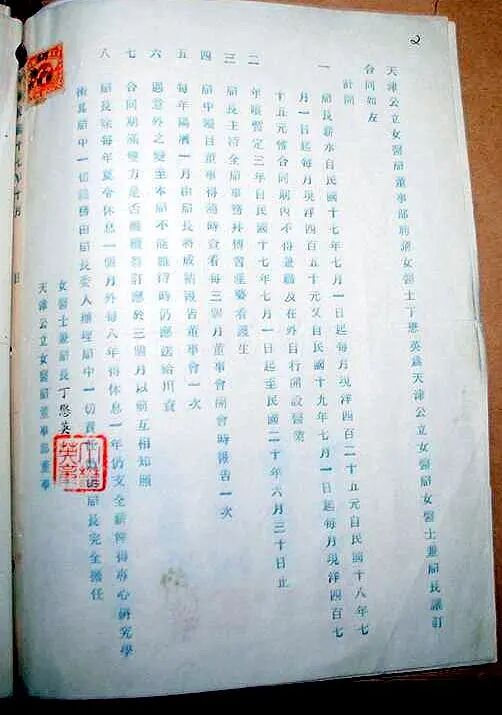 2
天津公立女醫局董事部聘請女醫士丁懋英為天津公立女醫局女醫士兼局長議訂
合同如左
計開
一 局長薪水自民國十七年七月一日起每月現洋四百二十五元自民國十八年七
月一日起每月現洋四百五十元又自民國十九年七月一日起每月現洋四百七
十五元惟合同期內不得兼職及在外自行開設醫業
二 年限暫定三年自民國十七年七月一日起至民國二十年六月三十日止
三 局長主持全局事務并傳習產婆看護生
四 局中賬目董事得隨時查看每三個月董事會開會時報告一次
五 每年陽曆一月由局長將成績報告董事會一次
六 遇意外之變至本局不能維持時仍應送給川資
七 合同期滿雙方是否繼續另訂應於三個月以前互相知照
八 局長除每年夏令休息一個月外每八年得休息一年仍支全薪俾得專心研究學
術其局中一切職務由局長委人辦理局中一切責任仍由局長完全擔任
女醫士兼局長丁懋英
天津公立女醫局董事部董事